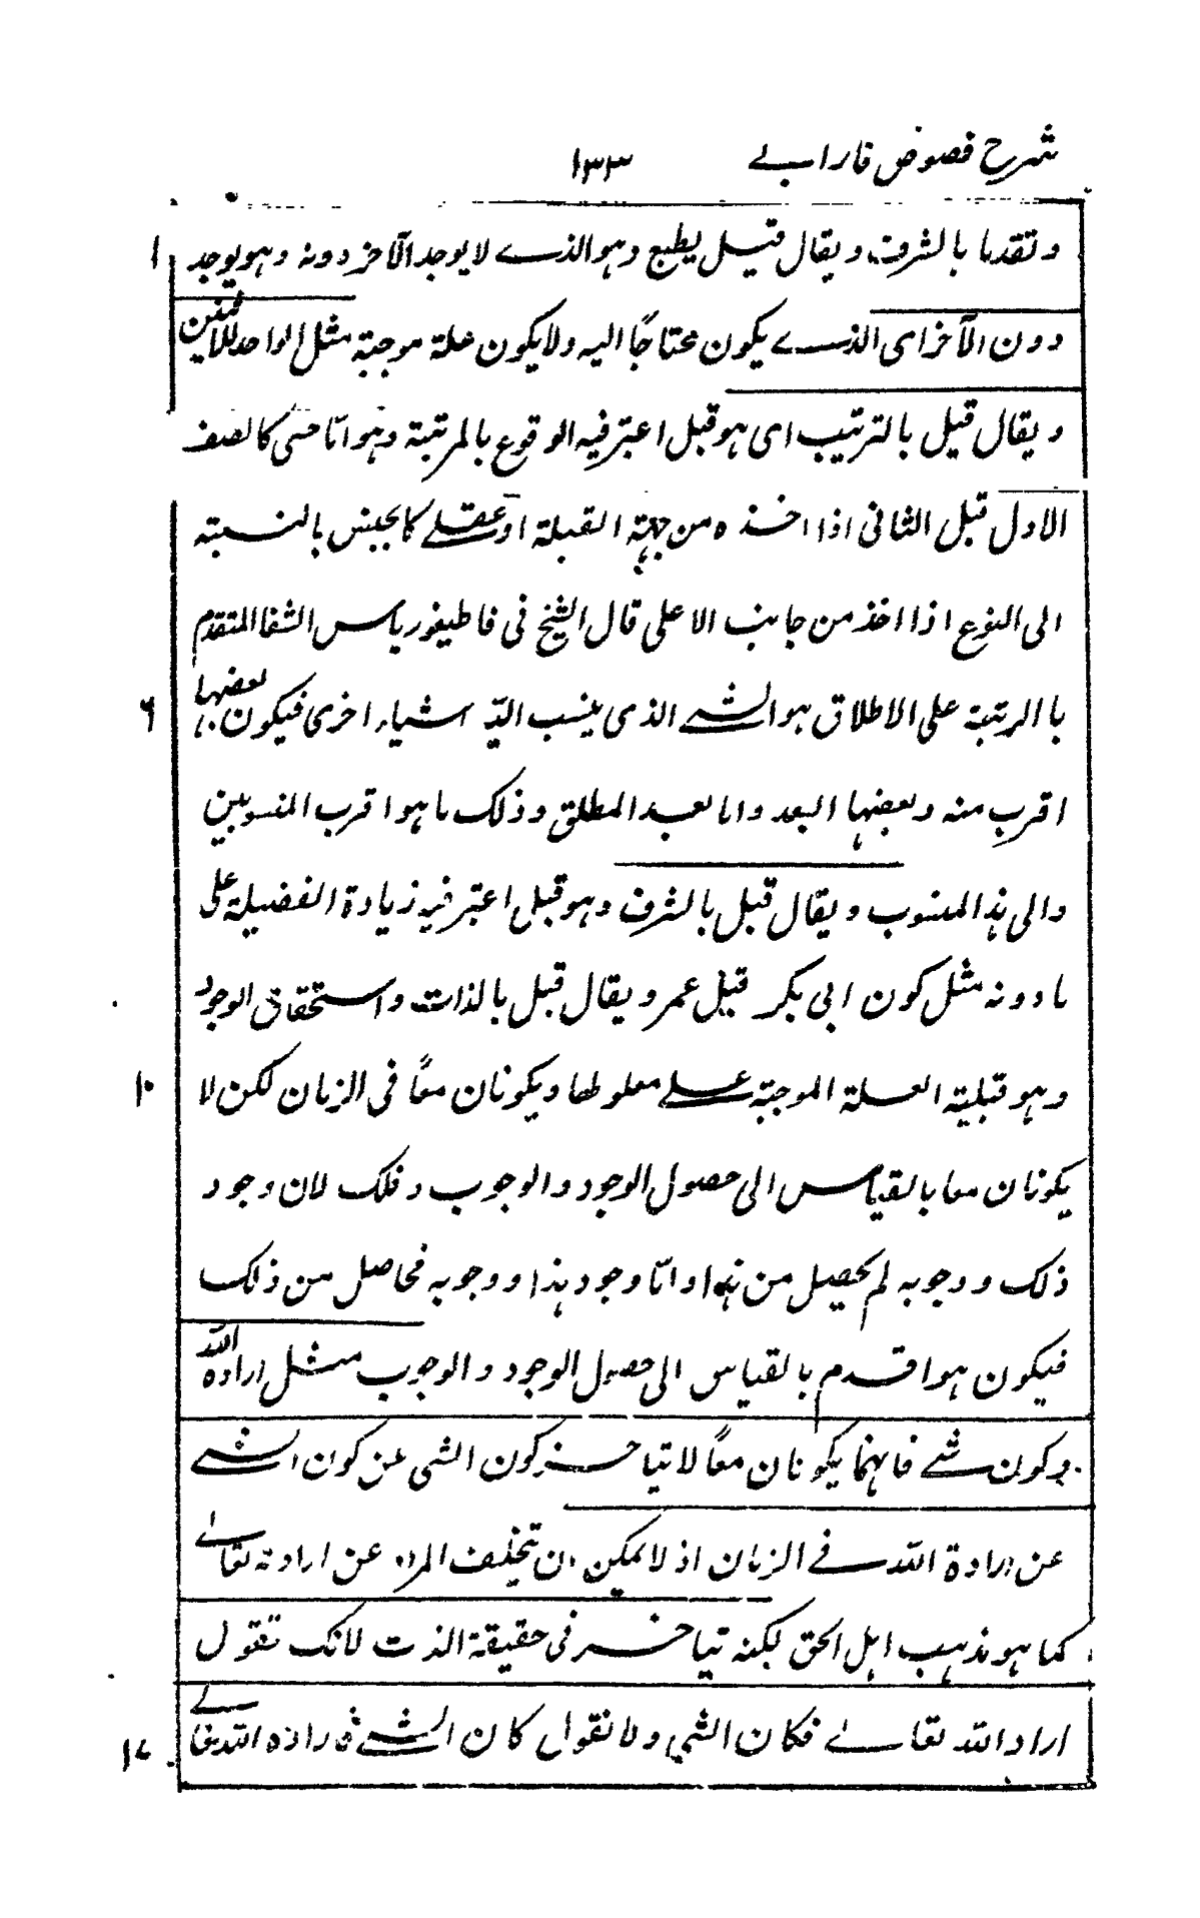 شرح فصوص فارابے ١٣٣
١ وتقدما بالشرف ويقال قبل بطبع وهو الذے لا يوجد الآخر دونه وهو يوجد
دون الآخر اى الذے يكون محتاجًا اليه ولا يكون علة موجبة مثل الواحد للاثنين
ويقال قبل بالترتيب اى هو قبل اعتبر فيه الوقوع بالمرتبة وهو امّا حسى كالصف
الاول قبل الثانى اذا اخذه من جهة القبلة او عقلے كالجنس بالنسبة
الى النوع اذا اخذ من جانب الاعلى قال الشيخ فى قاطيغورياس الشفا المتقدم
٦ با الرتبة على الاطلاق هو الشے الذى ينسب اليه اشياء اخرى فيكون بعضها
اقرب منه وبعضها ابعد واما بعد المطلق وذلك ما هو اقرب المنسوبين
والى هذا المنسوب ويقال قبل بالشرف وهو قبل اعتبر فيه زيادة الفضيلة على
ما دونه مثل كون ابى بكر قبل عمر ويقال قبل بالذات واستحقاق الوجود
١٠ وهو قبلية العلة الموجبة علے معلولها ويكونان معًا فى الزمان لكن لا
يكونان معا بالقياس الى حصول الوجود والوجوب وذلك لان وجود
ذلك ووجوبه لم يحصل من هذا وامّا وجود هذا ووجوبه فحاصل من ذلك
فيكون هو اقدم بالقياس الى حصول الوجود والوجوب مثل ارادة الله
وكون شے فانهما يكونان معًا لا يتاخر كون الشى عن كون الشے
عن ارادة الله فے الزمان اذ لا يمكن ان تخلف المراد عن ارادته تعالے
كما هو مذهب اهل الحق لكنه يتاخر فى حقيقة الذت لانك تقول
١٧ اراد الله تعالے فكان الشى ولا تقول كان الشے فاراده الله تعالے